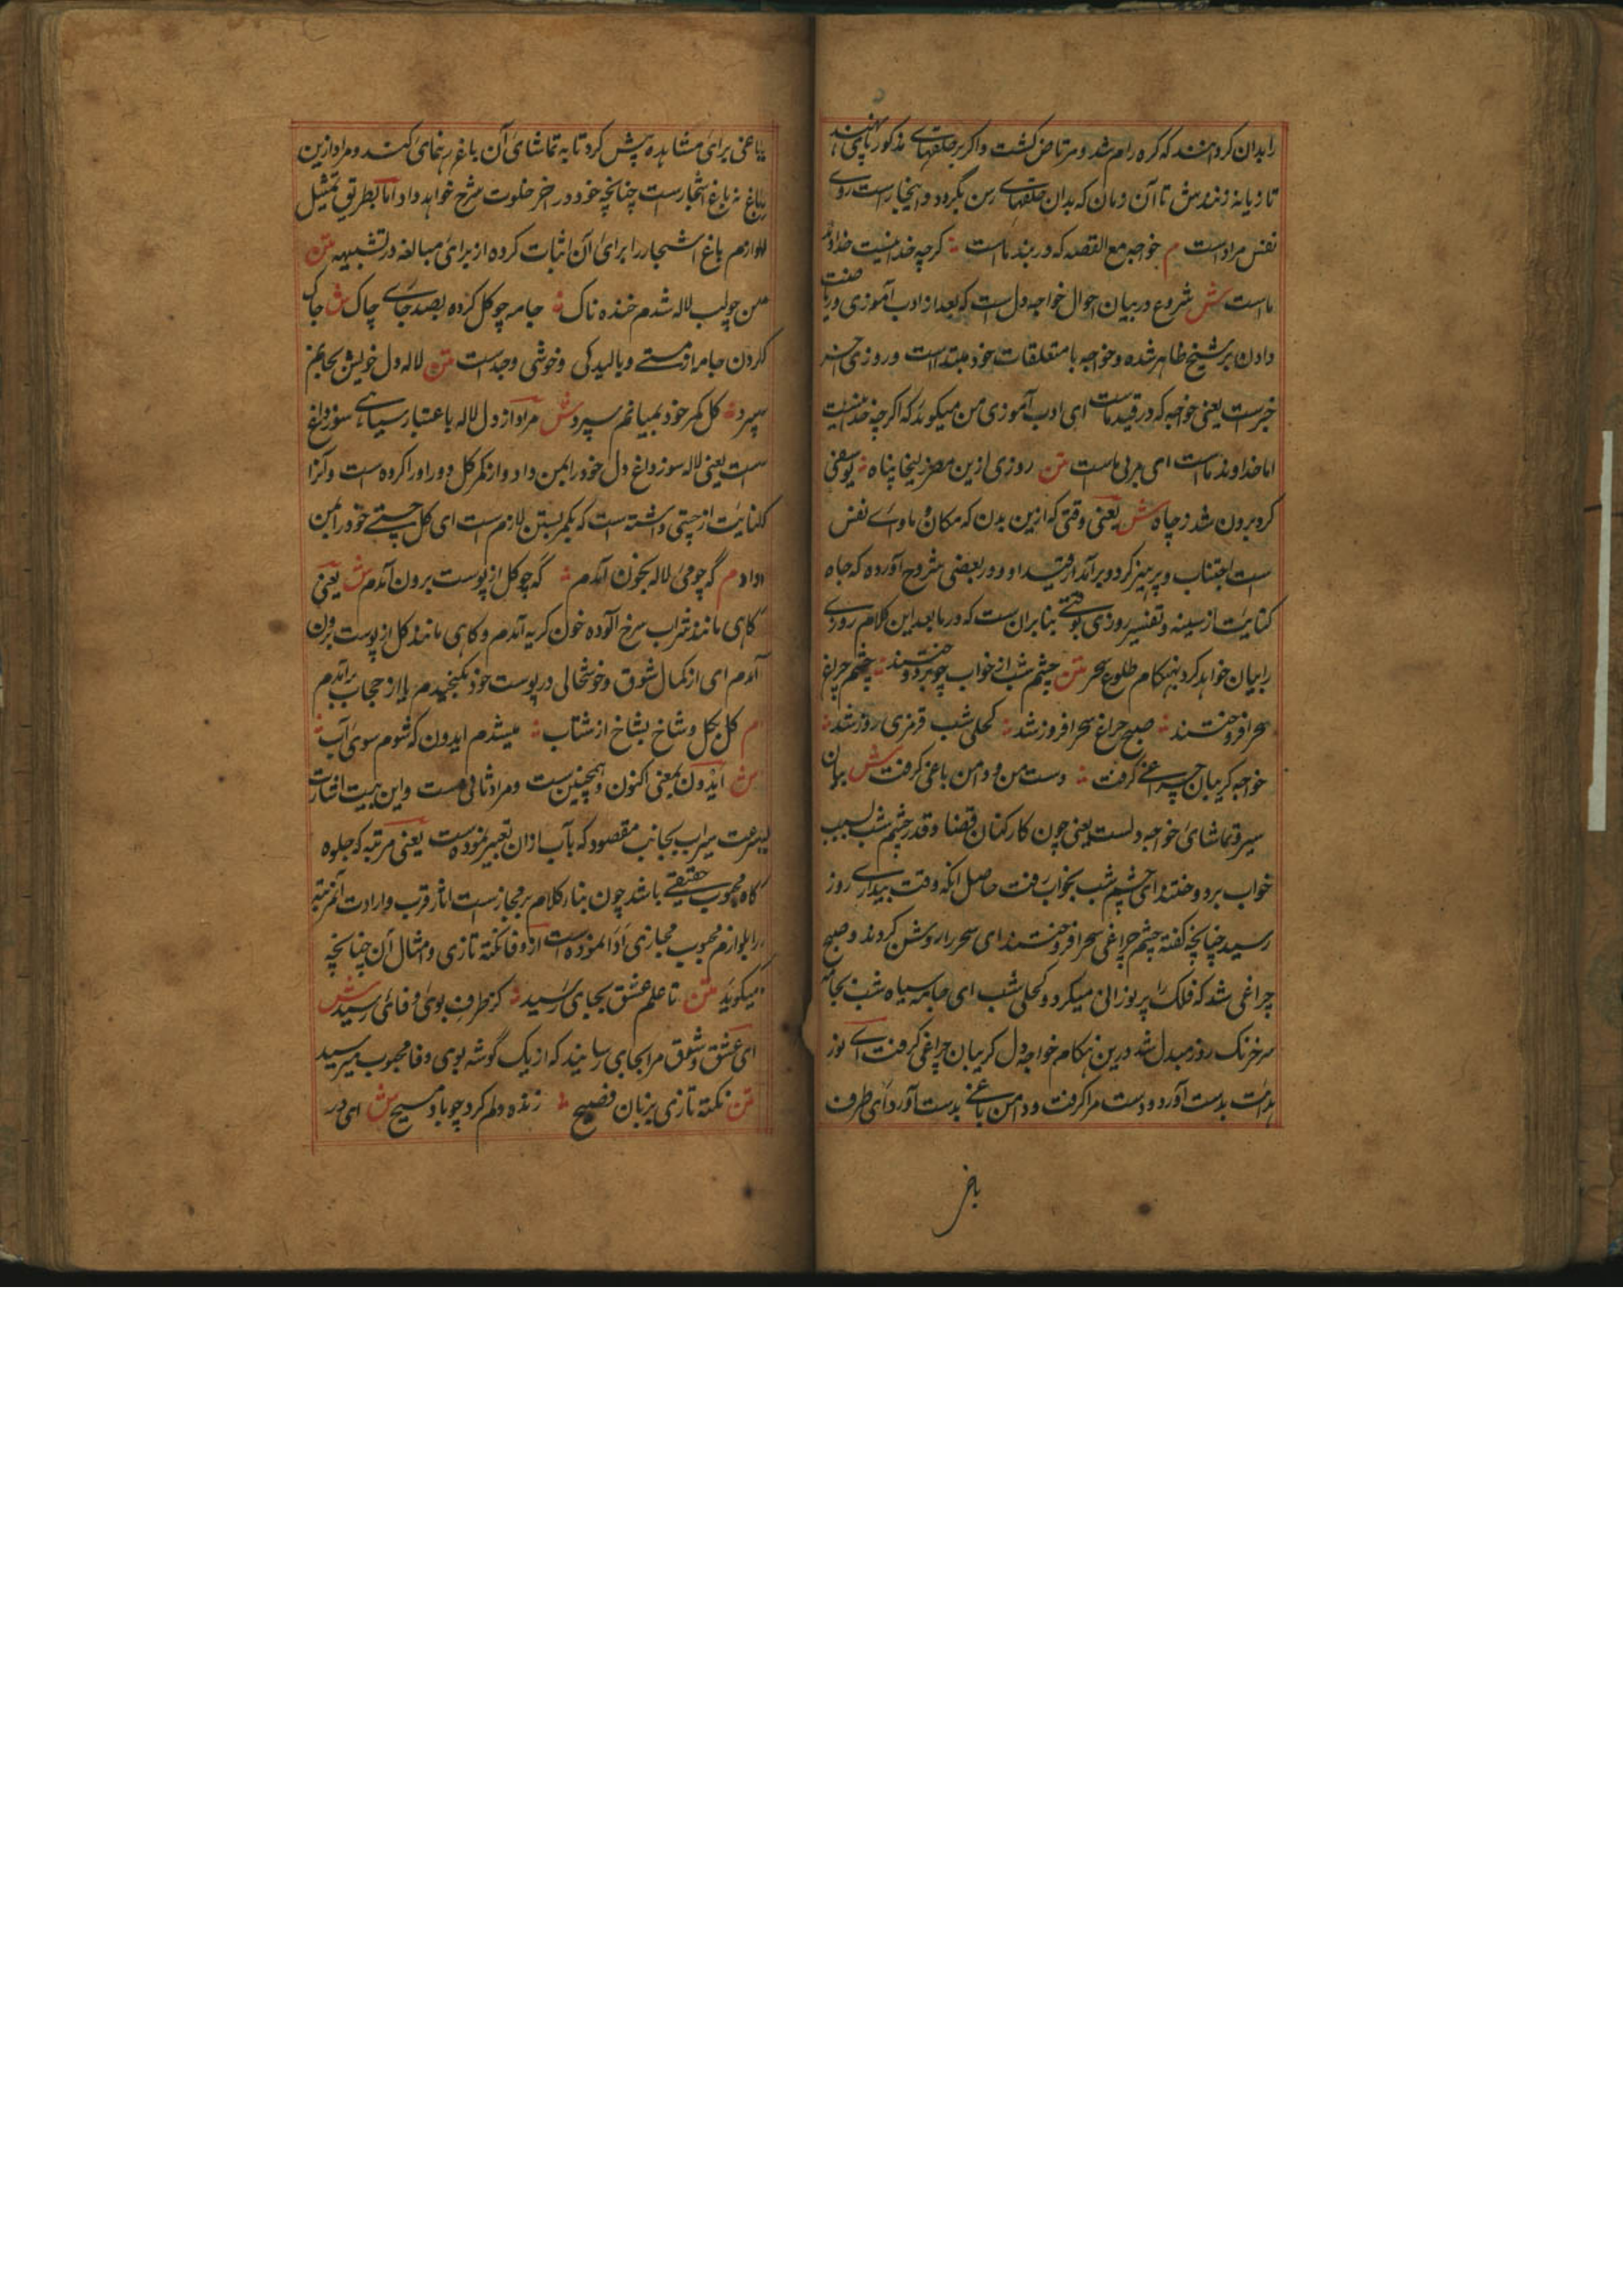 را بدان کردهند که کره رام شد و مرتاض کشت و اکر بر حلقهای مذکور تا پی نهند
تازیانه زنندش تا آن زمان که بدان حلقهای رس بکرود و اینجا راست روی
نفس مراد است م خواجه مع القصه که در بند ماست کرچه خدا نیست خداوند
ماست ش شروع در بیان احوال خواجه دل است که بعد از ادب آموزی و ریاضت
دادن بر شیخ ظاهر شده و خواجه با متعلقات خود مبتداست و روزی
خبرست یعنی خواجه که در قید ماست ای ادب آموزی من میکوید که اکرچه خدا نیست
اما خداوند ماست ای مربی ماست متن روزی ازین مصر زلیخا پناه یوسفی
کرد برون شد ز چاه ش یعنی وقتی که ازین بدن که مکان و ماوای نفس
ست اجتناب و پرهیز کرد و برآمد از قید او و در بعضی شروح آورده که چاه
کنایت از سینه و تفسیر روزی بوقتی بنا بران ست که در ما بعد این کلام روزی
را بیان خواهد کرد بهنکام طلوع سحر متن چشم شب از خواب چو بردوختند چشم چراغ
سحر افروختند صبح چراغ سحر افروز شد کحلی شب قرمزی روز شد
خواجه کریبان چراغی کرفت دست من و دامن باغی کرفت ش بیان
سیر و تماشای خواجه دلست یعنی چون کارکنان قضا و قدر چشم شب بسبب
خواب بردوختند ای چشم شب بخواب رفت حاصل انکه وقت بیداری روز
رسید چنانچه کفته چشم چراغی سحر افروختند ای سحر را روشن کردند و صبح
چراغی شد که فلک را پر نورانی میکرد و کحلی شب ای جامه سیاه شب بجامه
سرخ رنک روز مبدل شد درین هنکام خواجه دل کریبان چراغی کرفت ای نور
هدایت بدست آورد و دست مرا کرفت و دامن باغی بدست آورد ای طرف
باغی برای مشاهده پیش کرد تا به تماشای آن باغ رهنمای کند و مراد ازین
باغ نه باغ اشجارست چنانچه خود در آخر خلوت شرح خواهد داد اما بطریق تمثیل
لوازم باغ اشجار را برای آن اثبات کرده از برای مبالغه در تشبیه متن
من چو لب لاله شدم خنده ناک جامه چو کل کرده بصد جای چاک ش چاک
کردن جامه از مستی و بالیدکی و خوشی و جدست متن لاله دل خویش بجانم
سپرد کل کمر خود بمیانم سپرد ش مراد از دل لاله باعتبار سیاهی سوز داغ
ست یعنی لاله سوز داغ دل خود را بمن داد و از کمر کل دور او را کرده ست و کنرا
کنایت از چستی داشته است که بکمر بستن لازم ست ای کل چستی خود را بمن
داد م که چو می لاله بخون آمدم که چو کل از پوست برون آمدم ش یعنی
کاهی مانند شراب سرخ آلوده خون کریه آمدم و کاهی مانند کل از پوست برون
آمدم ای از کمال شوق و خوشحالی در پوست خود نکنجیدم یا از حجاب برآمدم
م کل بکل و شاخ بشاخ از شتاب میشدم ایدون که شوم سوی آب
ش ایدون بمعنی اکنون و همچنین ست و مراد ثانی ست و این بیت اشارت
بسرعت سیر اب بجانب مقصود که بآب ازان تعبیر نموده ست یعنی مرتبه که جلوه
کاه محبوب حقیقی باشد چون بناء کلام بر مجازست آثار قرب و ارادت آن مرتبه
را بلوازم محبوب مجازی ادا نموده است از وفا نکته تازی و امثال آن چنانچه
میکوید متن تا علم عشق بجای رسید کز طرف بوی وفای رسید ش
ای عشق و شوق مرا بجای رسانید که از یک گوشه بوی وفا محبوب میرسید
متن نکته تازی بزبان فصیح زنده دلم کرد چو باد مسیح ش ای در